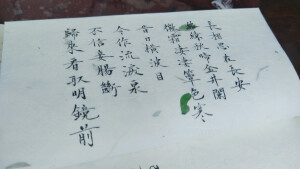 長相思在長安
絡緯秋啼金井闌
微霜淒淒簟色寒
昔日橫波目
今作流淚泉
不信妾腸斷
歸來看取明鏡前